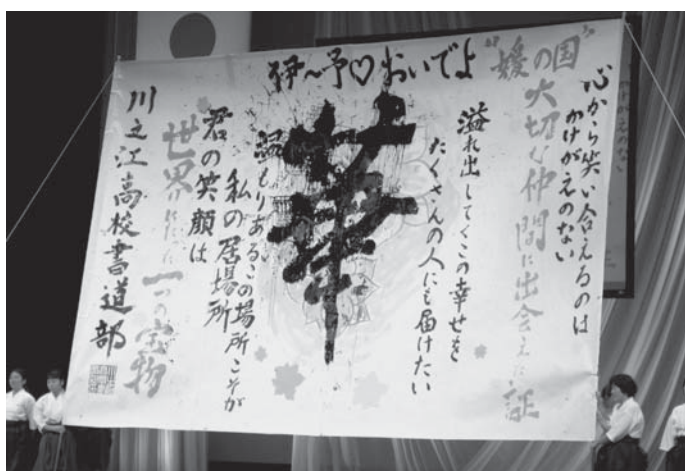 伊〜予♡おいでよ
“媛の国”
心から笑い合えるのは
かけがえのない
大切な仲間に出会えた証
溢れ出してくこの幸せを
たくさんの人にも届けたい
華
温もりあるこの場所こそが
私の居場所
君の笑顔は
世界にたった一つの宝物
川之江高校書道部